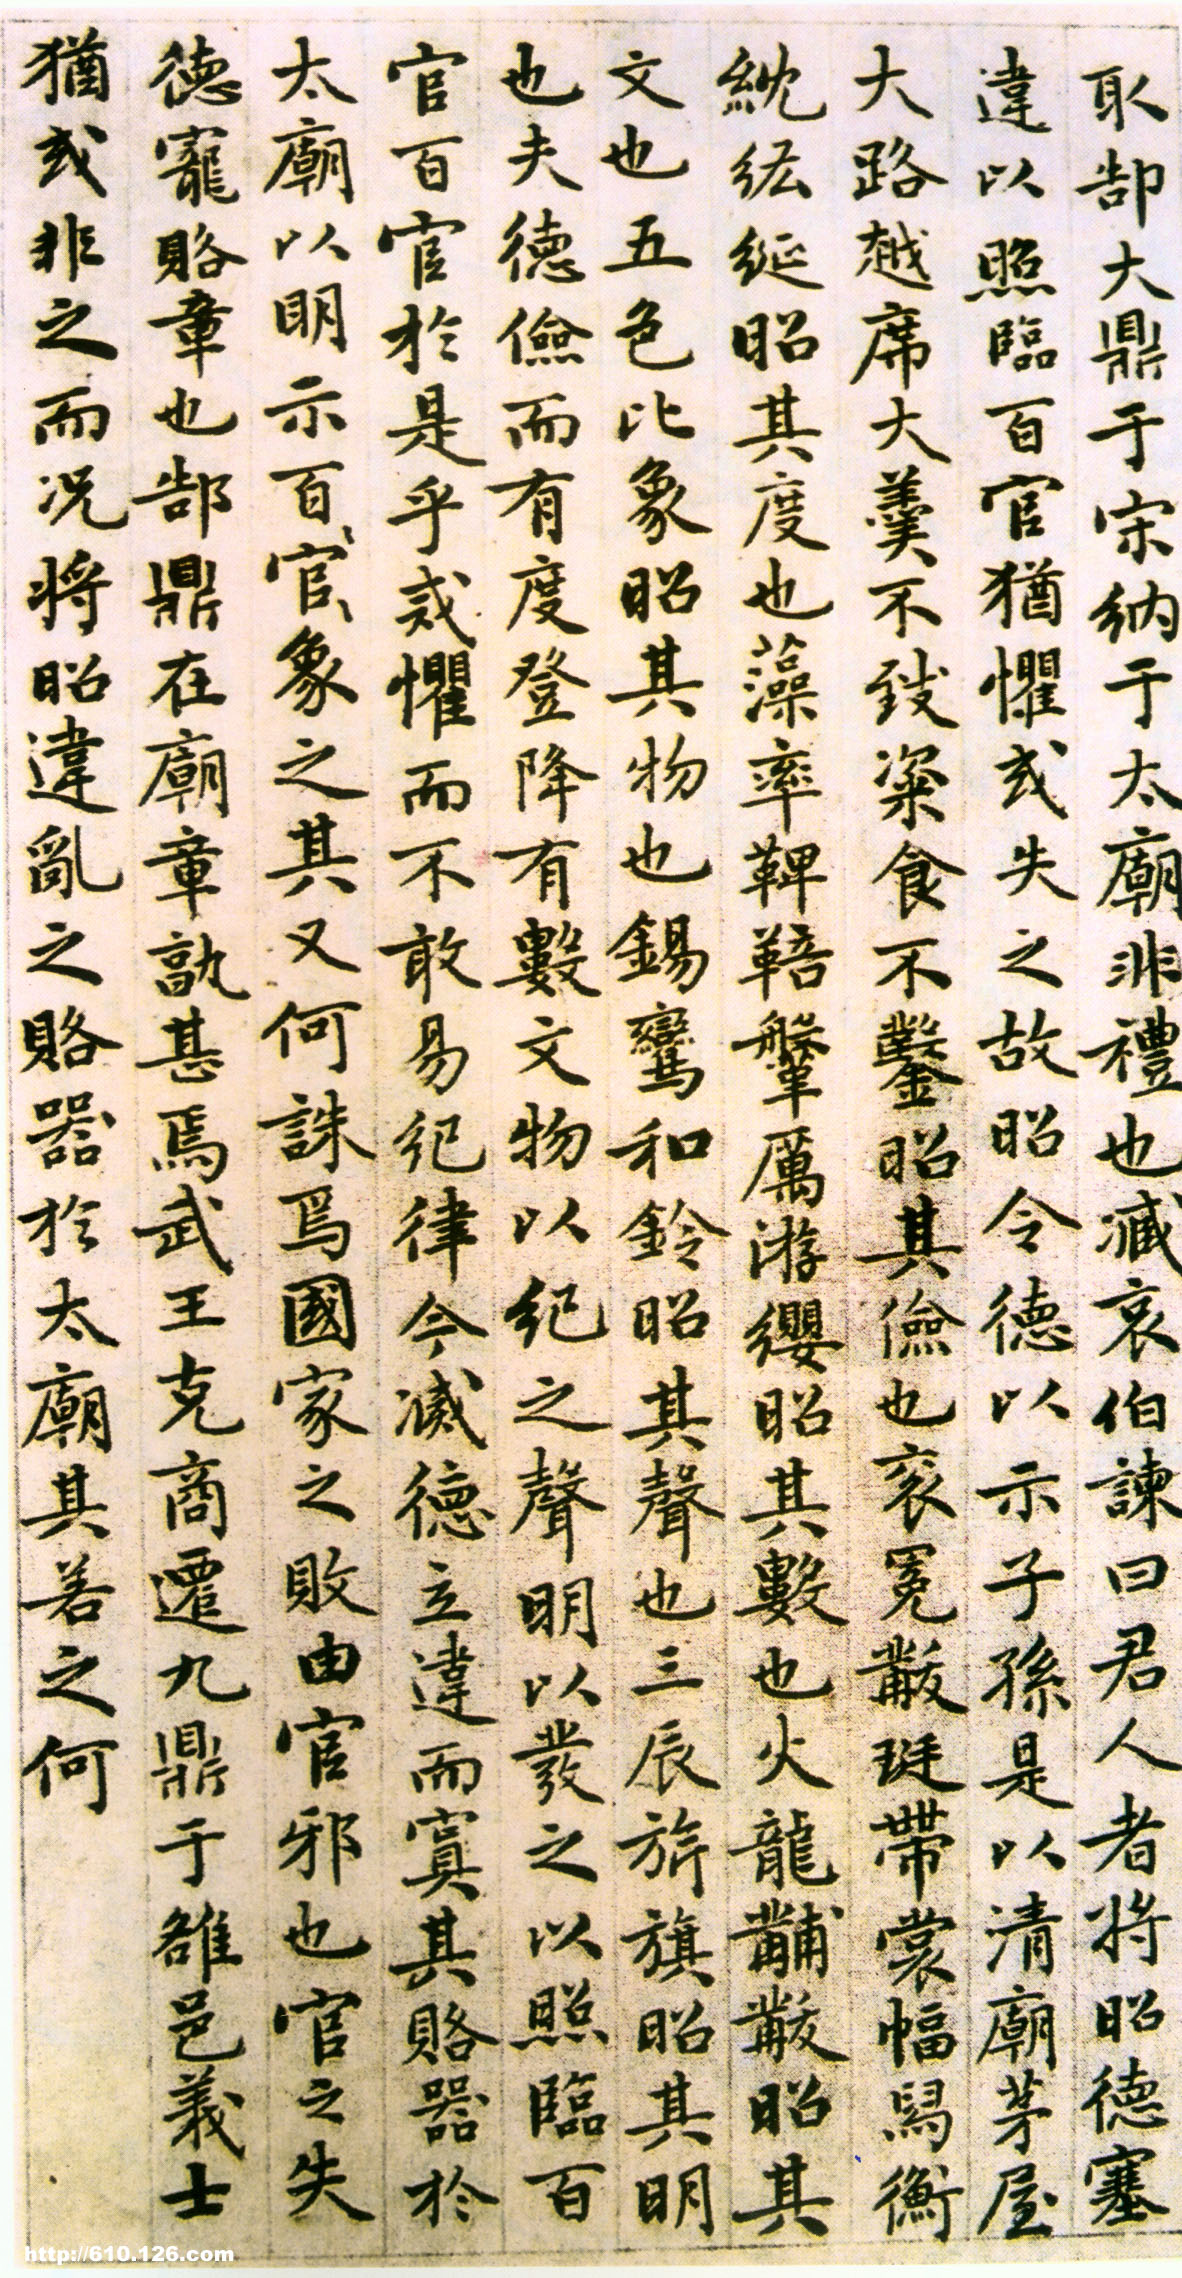 取郜大鼎于宋納于太廟非禮也臧哀伯諫曰君人者將昭德塞
違以照臨百官猶懼或失之故昭令德以示子孫是以清廟茅屋
大路越席大羹不致粢食不鑿昭其儉也衮冕黻珽帶裳幅舄衡
紞紘綖昭其度也藻率鞞鞛鞶厲游纓昭其數也火龍黼黻昭其
文也五色比象昭其物也錫鸞和鈴昭其聲也三辰旂旗昭其明
也夫德儉而有度登降有數文物以紀之聲明以發之以照臨百
官百官於是乎戒懼而不敢易紀律今滅德立違而寘其賂器於
太廟以明示百官象之其又何誅焉國家之敗由官邪也官之失
德寵賂章也郜鼎在廟章孰甚焉武王克商遷九鼎于雒邑義士
猶或非之而况將昭違亂之賂器於太廟其若之何
http://610.126.com